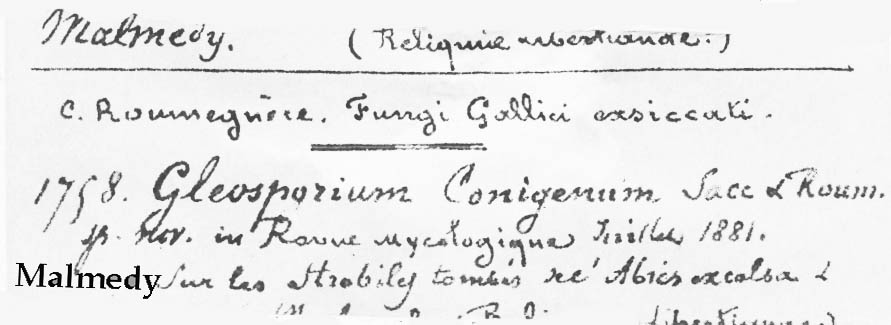 Malmedy. (Reliquiae Libertianae.)
C. Roumeguère. Fungi Gallici exsiccati.
1758. Gleosporium Conigenum Sacc & Roum.
sp. nov. in Revue mycologique Juillet 1881.
Malmedy Sur les Strobiles tombés de' Abies excelsa &